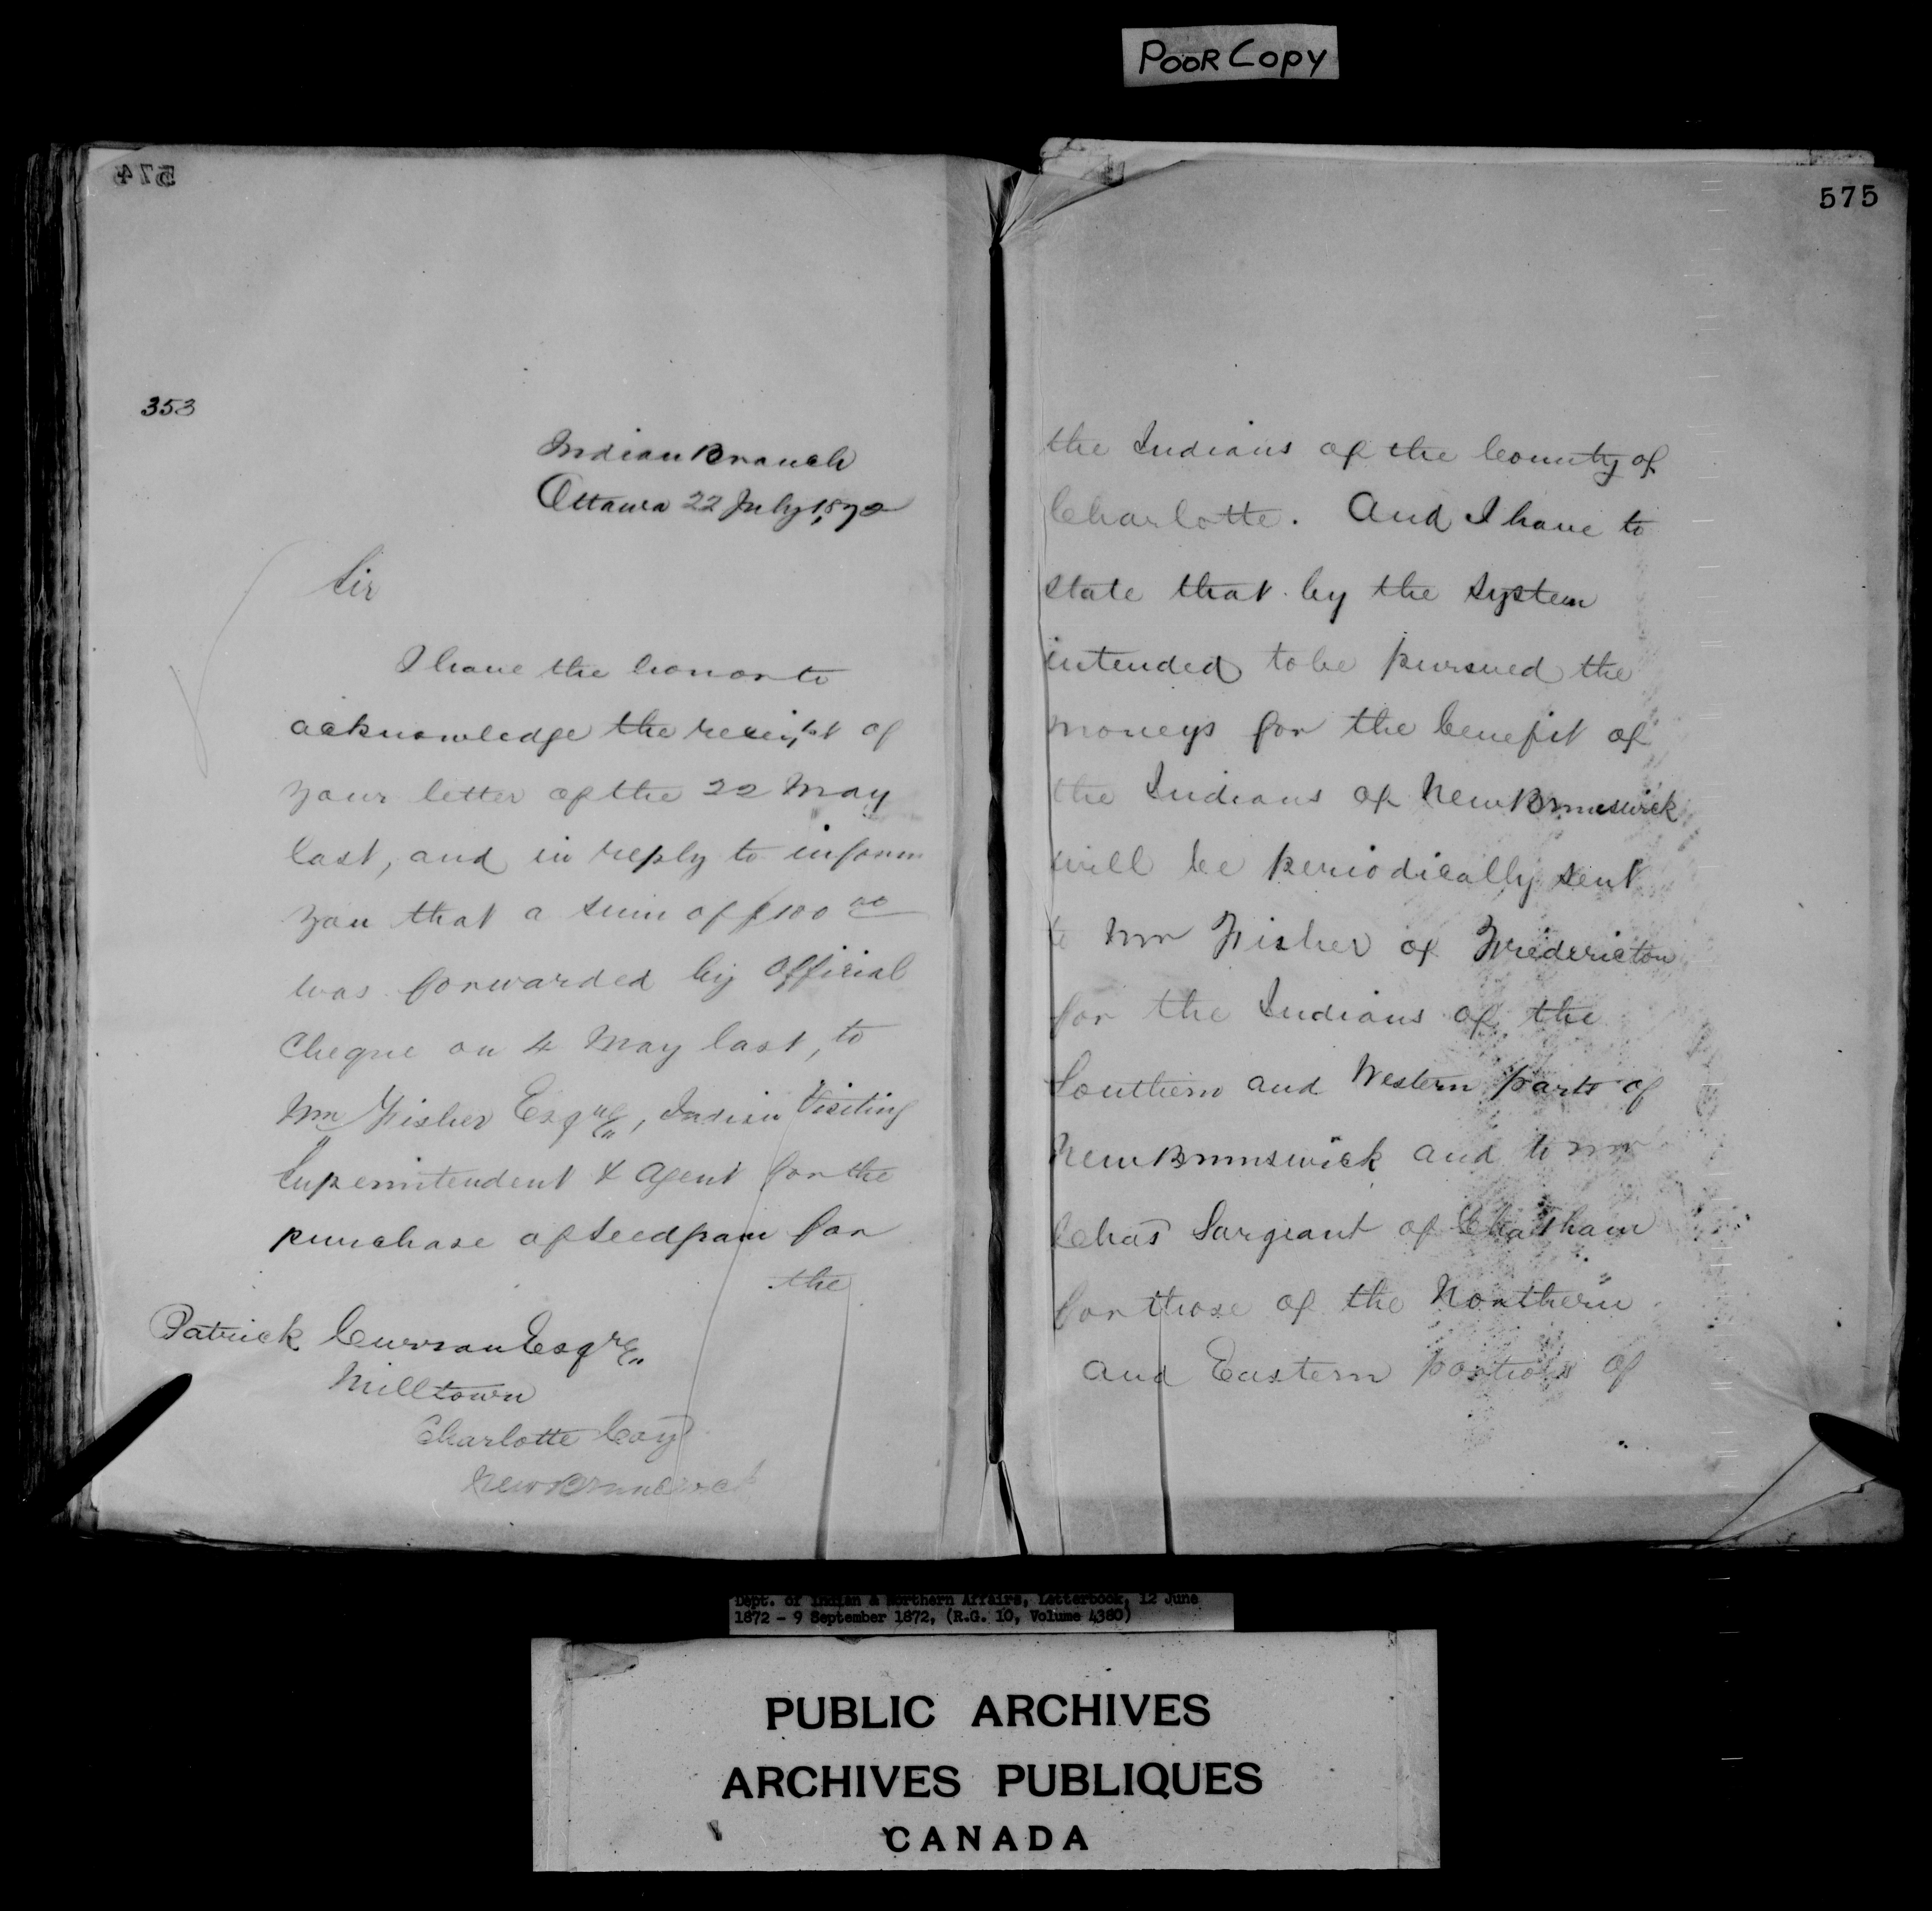 POOR COPY
574
353
Indian Branch
Ottawa 22 July 1872
Sir
I have the honor to
acknowledge the receipt of
your letter of the 22 May
last, and in reply to inform
you that a sum of $100 00
was forwarded by Official
Cheque on 4 May last, to
Wm Fisher Esqre, Indian Visiting
Superintendent & Agent for the
purchase of seedgrain for
the
Patrick Curran Esqre
Milltown
Charlotte Coy
New Brunswick
575
the Indians of the County of
Charlotte. And I have to
state that by the system
intended to be pursued the
moneys for the benefit of
the Indians of New Brunswick
will be periodically sent
to Mr Fisher of Fredericton
for the Indians of the
Southern and Western parts of
New Brunswick and to Mr
Chas Sargeant of Chatham
for those of the Northern
and Eastern portions of
Dept. of Indian & Northern Affairs, Letterbook, 12 June
1872 - 9 September 1872, (R.G. 10, Volume 4380)
PUBLIC ARCHIVES
ARCHIVES PUBLIQUES
CANADA